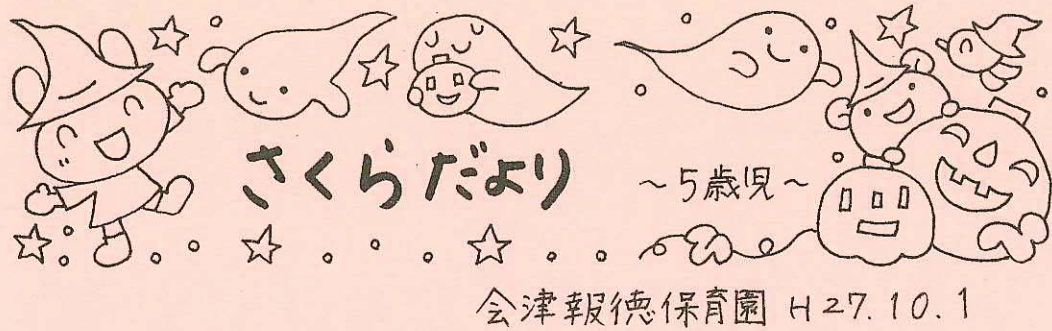 さくらだより
～5歳児～
会津報徳保育園 H27.10.1